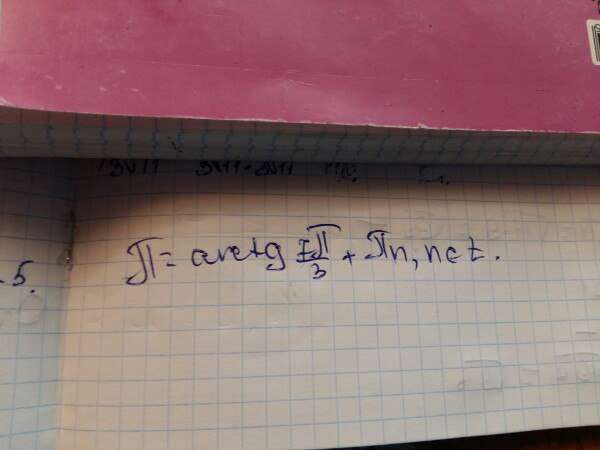 5.
π = arctg ±π/3 + πn, n∈Z.